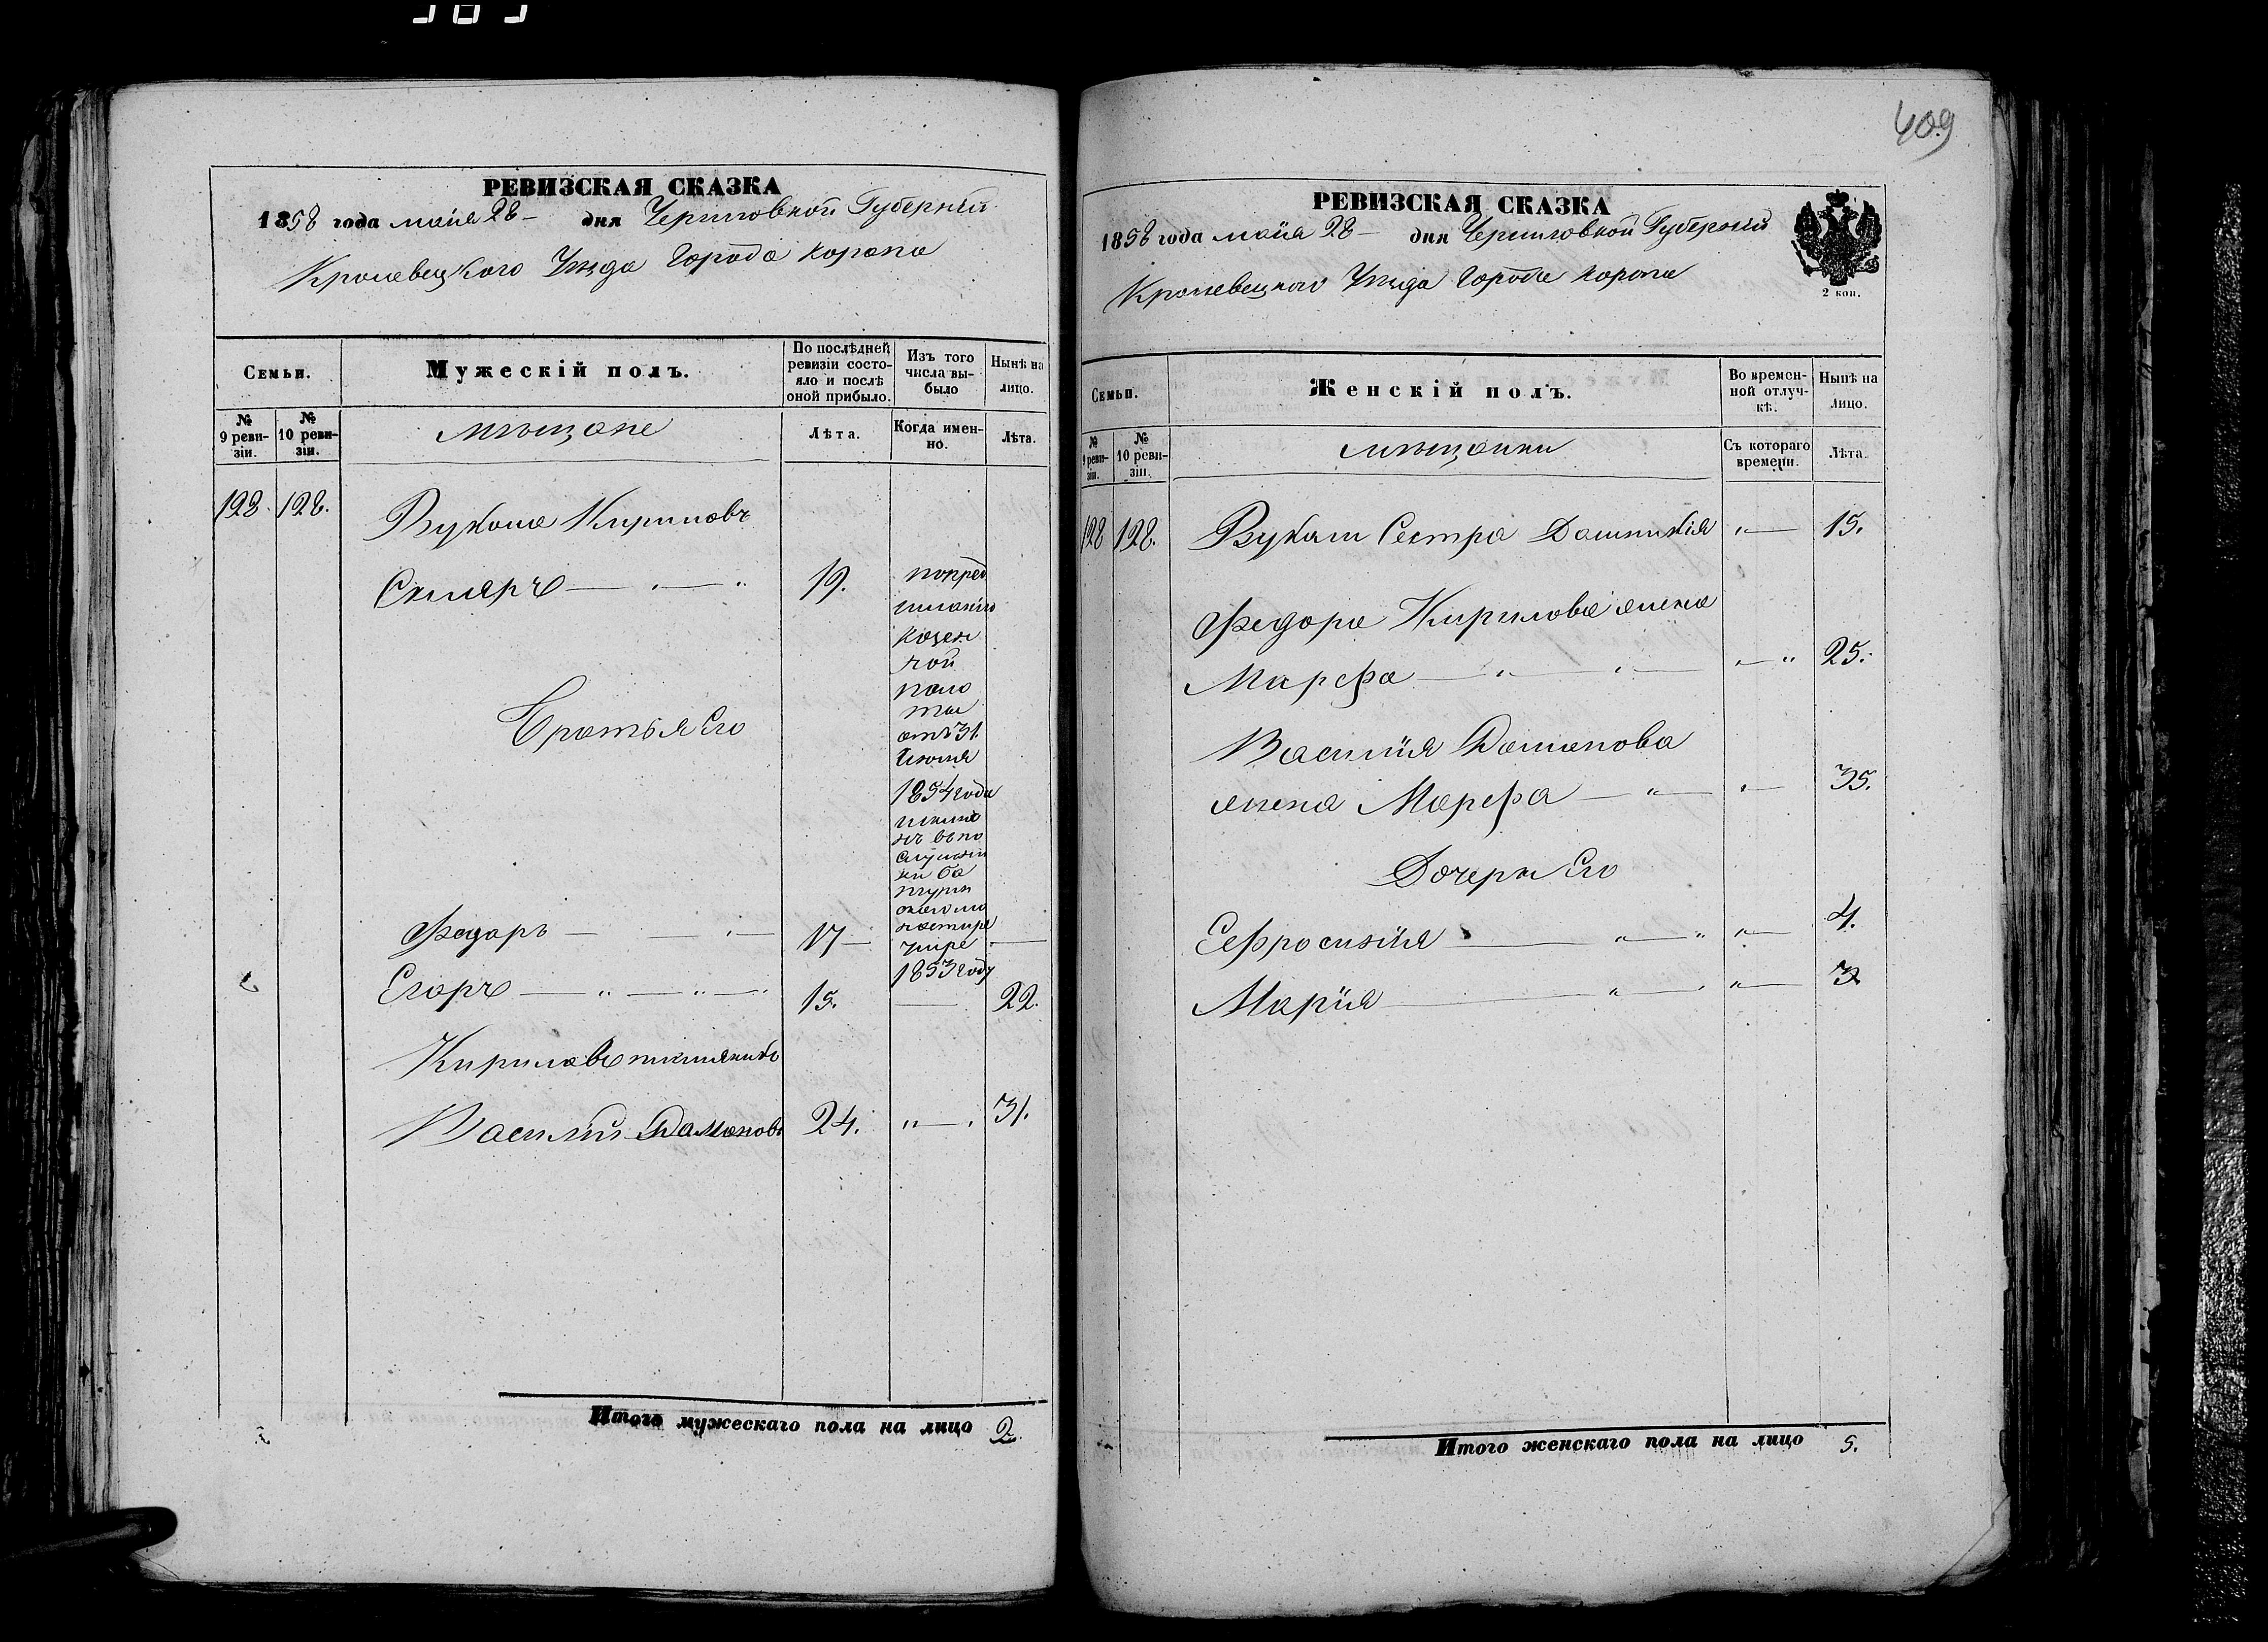 409
РЕВИЗСКАЯ СКАЗКА
1858 года мая 28 — дня Черниговской Губернии
Кролевецкого Уѣзда Города Коропа
Семьи.
Мужескій полъ.
По послѣдней ревизіи состо-
яло и послѣ
оной прибыло.
Изъ того
числа вы-
было
Нынѣ на
лицо.
№
9 реви-
зіи.
№
10 реви-
зіи.
мѣщане
Лѣта.
Когда имен-
но.
Лѣта.
128. 128.
Вукола Кириловъ
Скляръ 19.
попред
писанію
казен
ной
пала
ты
отъ 31
Июля
1854 года
исключ
Братья Его
Федоръ 17
1853 году
Егоръ 15. 22.
Кирилова племянникъ
Василій 24. 31.
Итого мужескаго пола на лицо 2.
РЕВИЗСКАЯ СКАЗКА
1858 года мая 28 — дня Черниговской Губерніи
Кролевецкого Уѣзда Города Коропа
2 коп.
Семьи.
Женскій полъ.
Во времен-
ной отлуч-
кѣ.
Нынѣ на
лицо.
№
9 реви-
зіи.
№
10 реви-
зіи.
мѣщанки
Съ котораго
времени.
Лѣта.
128 128.
Вукола Сестра 15.
Федора Кирилова жена
Марфа 25.
Василія
жена Марфа 35.
Дочери Его
Еефросинія 4.
Марія 3
Итого женскаго пола на лицо 5.